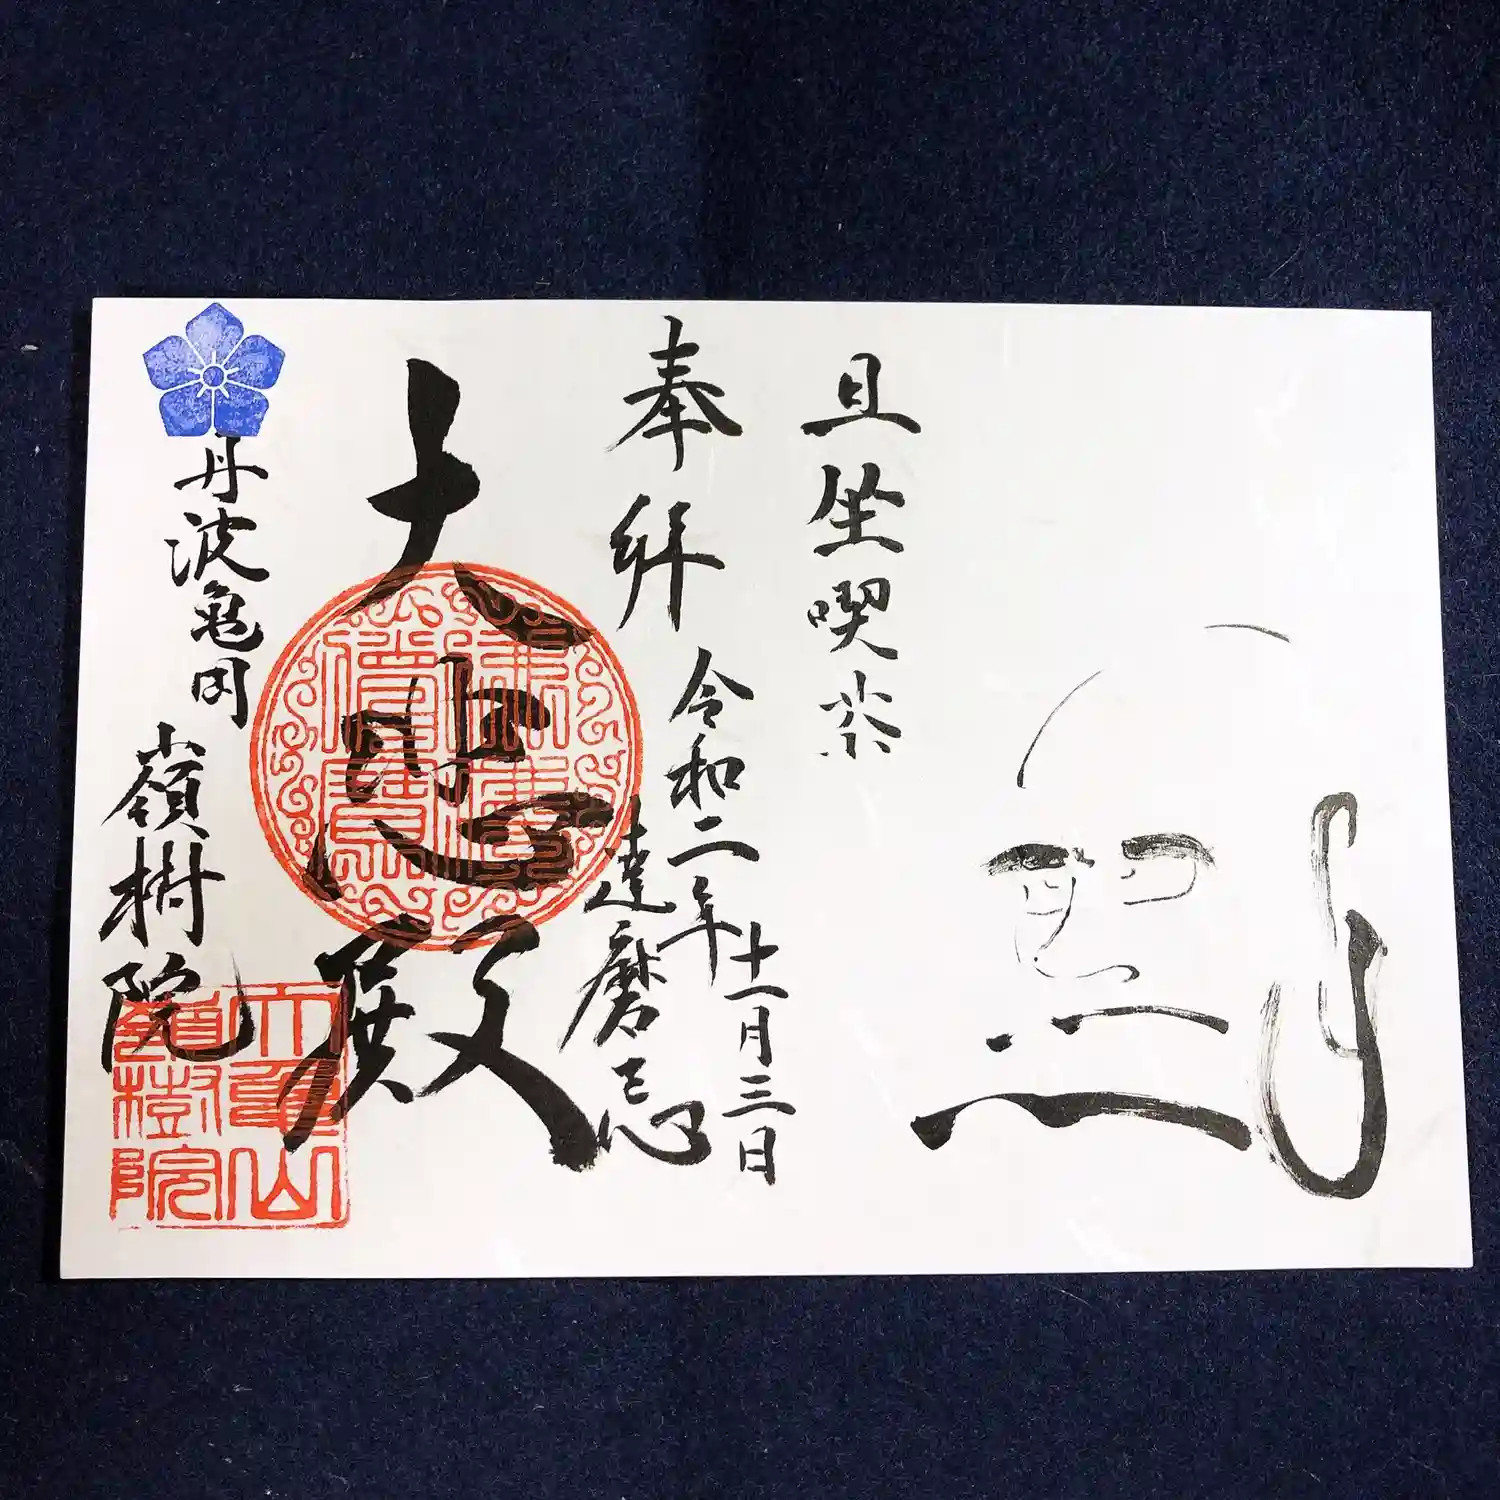 且坐喫茶
奉拝
令和二年十一月三日
達磨忌
大悲殿
丹波亀岡
嶺樹院
佛法僧寶
大亀山
嶺樹院